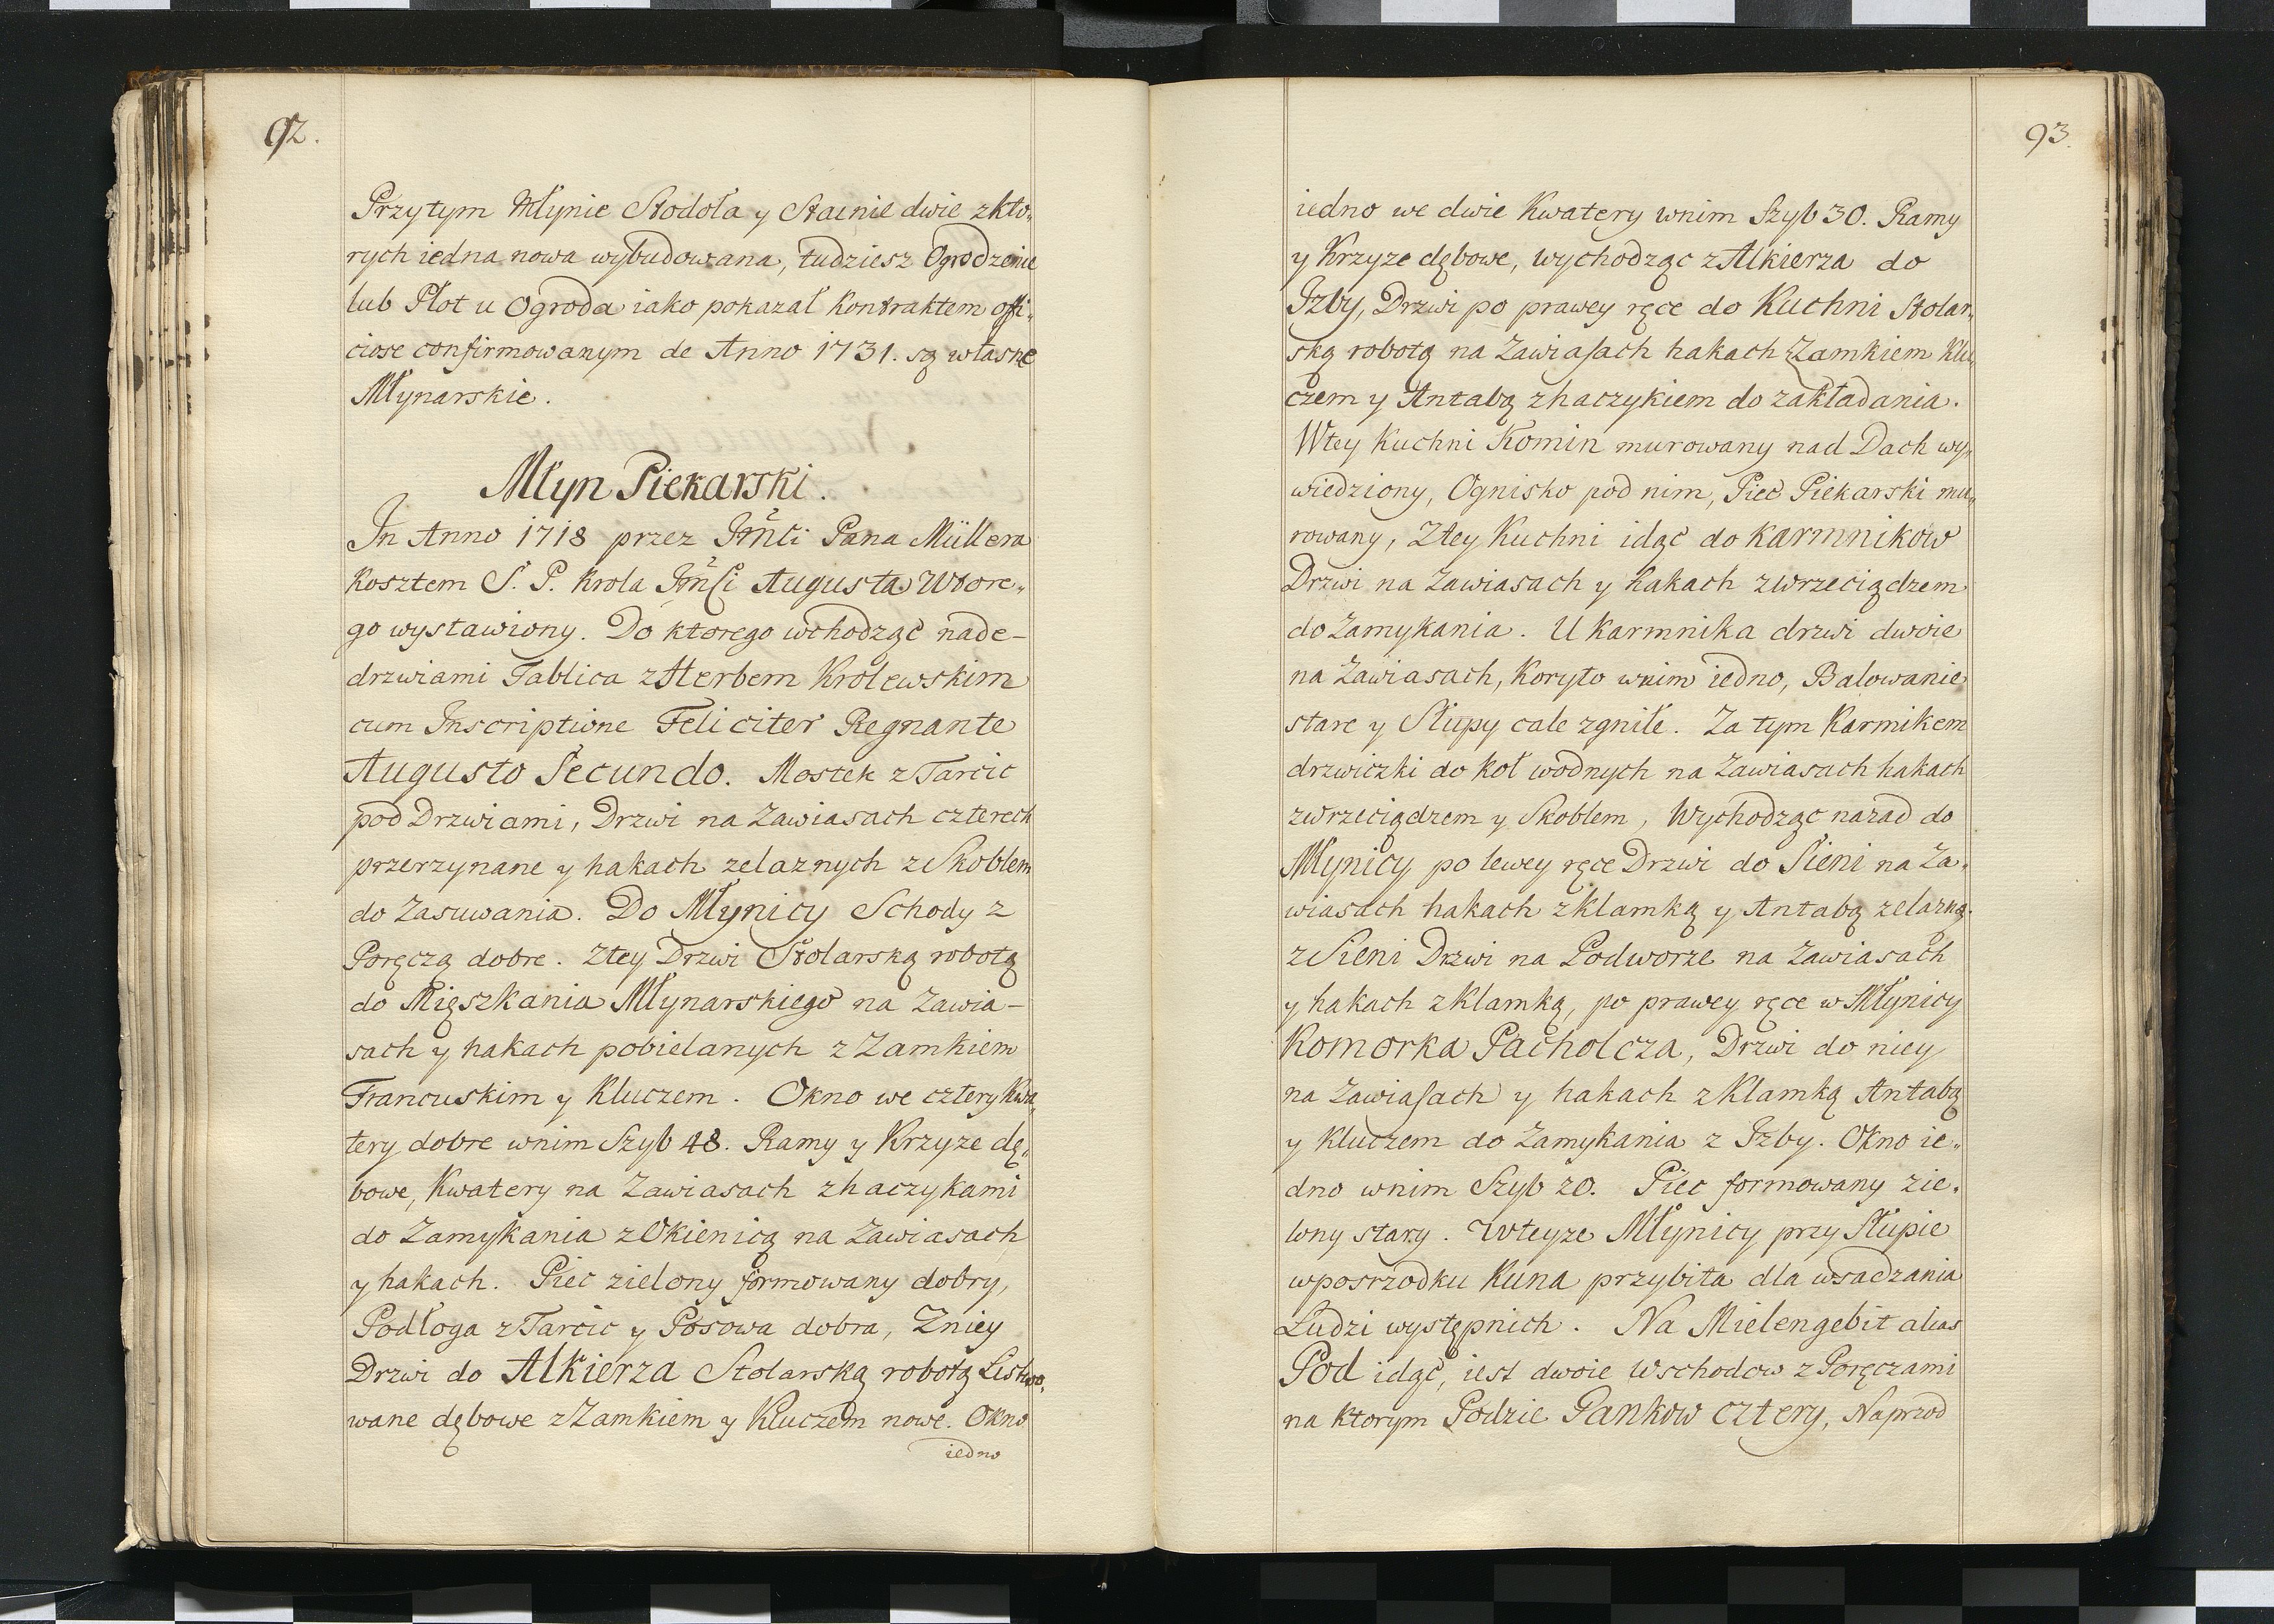 92.
Przytym Młynie Stodoła y Stainie dwie zkto„
rych iedna nowa wybudowana, tudziesz Ogrodzenie
lub Płot u Ogroda iako pokazał Kontraktem offi„
ciose confirmowanym de Anno 1731. są własne
Młynarskie.
Młyn Piekarski.
In Anno 1718 przez Jmci Pana Müllera
Kosztem S. P. Krola Jmci Augusta Wtore„
go wystawiony. Do ktorego wchodząc nade-
drzwiami Tablica zHerbem Krolewskim
cum Inscriptione Feliciter Regnante
Augusto Secundo. Mostek zTarcic
pod Drzwiami, Drzwi na Zawiasach czterech
przerzynane y hakach zelaznych zSkoblem
do Zasuwania. Do Młynicy Schody z
Poręczą dobre. Ztey Drzwi Stolarską robotą
do Mięszkania Młynarskiego na Zawia-
sach y hakach pobielanych z Zamkiem
Francuskim y Kluczem. Okno we cztery Kwa„
tery dobre wnim Szyb 48. Ramy y Krzyze dę„
bowe, Kwatery na Zawiasach zhaczykami
do Zamykania zOkienicą na Zawiasach
y hakach. Piec zielony formowany dobry,
Podłoga zTarcic y Posowa dobra, Zniey
Drzwi do Alkierza Stolarską robotą Listwo„
wane dębowe zZamkiem y Kluczem nowe. Okno
iedno
93.
iedno we dwie Kwatery wnim Szyb 30. Ramy
y Krzyze dębowe, wychodząc zAlkierza do
Izby, Drzwi po prawey ręce do Kuchni Stolar„
ską robotą na Zawiasach hakach zZamkiem Klu„
czem y Antabą zhaczykiem do zakładania.
Wtey Kuchni Komin murowany nad Dach wy„
wiedziony, Ognisko pod nim, Piec Piekarski mu„
rowany, Ztey Kuchni idąc do Karmnikow
Drzwi na Zawiasach y hakach zwrzeciądzem
do Zamykania. U Karmnika drzwi dwoie
na Zawiasach, Koryto wnim iedno, Balowanie
stare y Słupy cale zgniłe. Za tym Karmikem
drzwiczki do Koł wodnych na Zawiasach hakach
zwrzeciądzem y Skoblem, Wychodząc nazad do
Młynicy po lewey ręce Drzwi do Sieni na Za„
wiasach hakach zklamką y Antabą zelazną.
zSieni Drzwi na Podworze na Zawiasach
y hakach zKlamką, po prawey ręce w Młynicy
Komorka Pacholcza, Drzwi do niey
na Zawiasach y hakach zKlamką Antabą
y Kluczem do Zamykania z Izby. Okno ie„
dno wnim Szyb 20. Piec formowany zie„
lony stary. Wteyze Młynicy przy Słupie
wposrzodku Kuna przybita dla wsadzania
Ludzi występnich. Na Mielengebit alias
Pod idąc, iest dwoie Wschodow zPoręczami
na Ktorym Podzie Gankow cztery, Naprzod